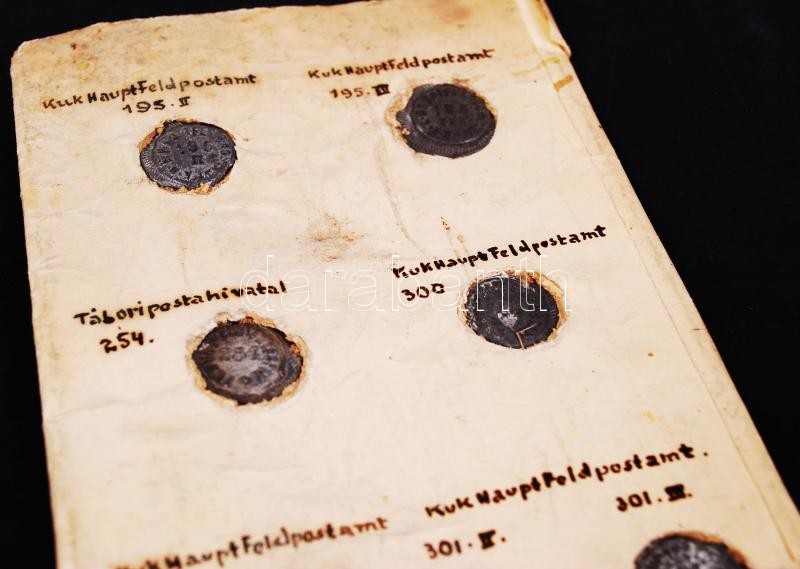 KukHauptFeldpostamt
195. II
KukHauptFeldpostamt
195. III
Táboripostahivatal
254.
KukHauptFeldpostamt
300
KukHauptFeldpostamt
KukHauptFeldpostamt.
301. II.
301. III.
darabanth